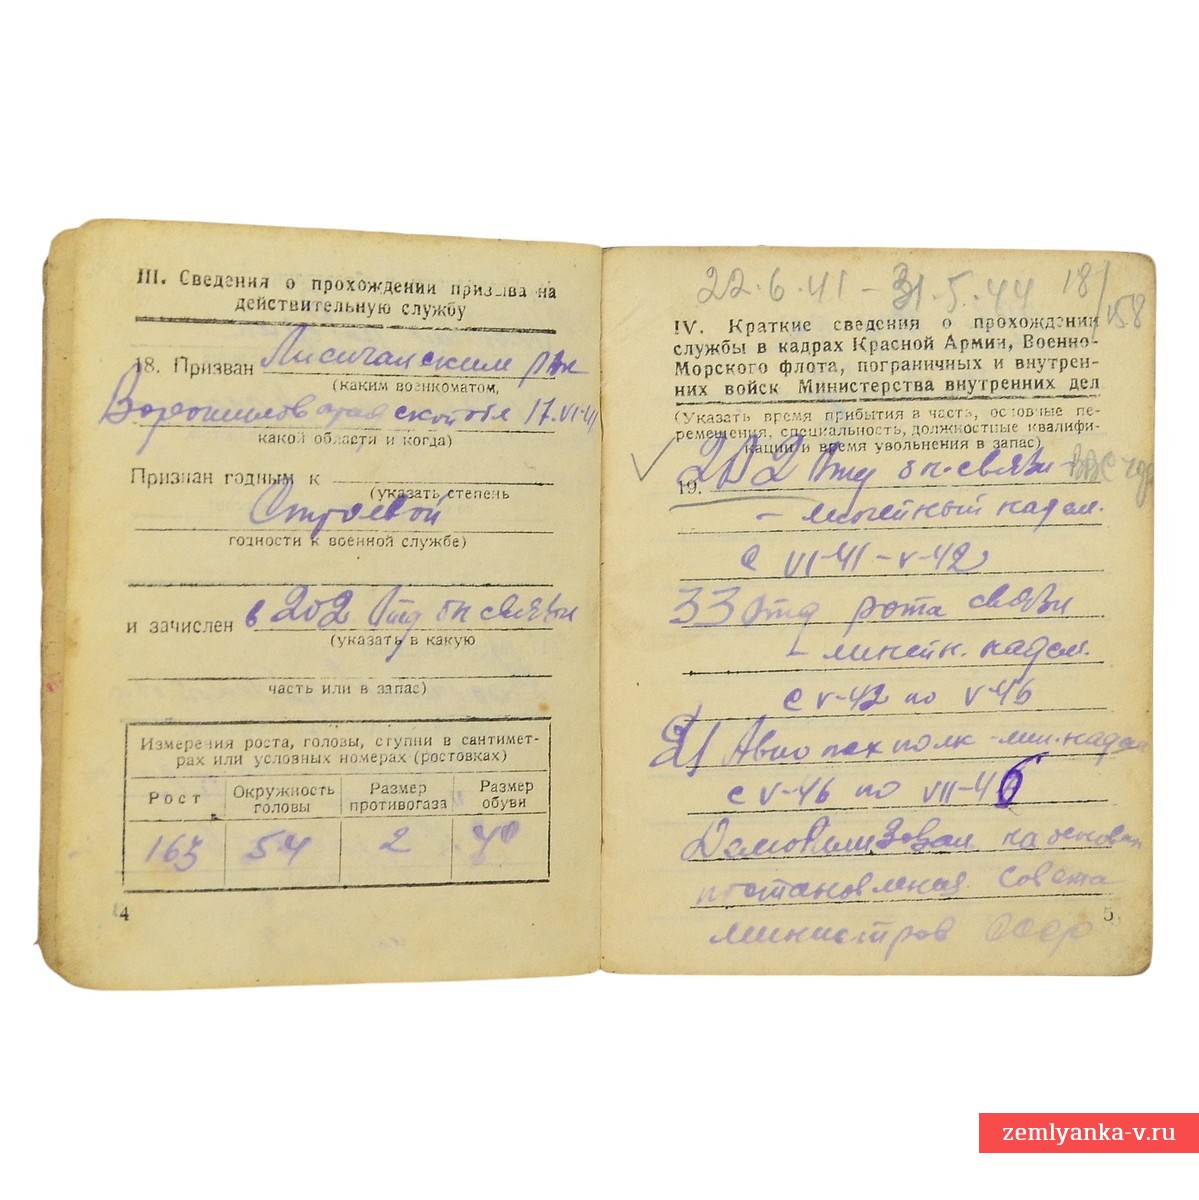 III. Сведения о прохождении призыва на
действительную службу
18. Призван Лисичанским рвк
(каким военкоматом,
Ворошиловоградской обл 17.VI-41
какой области и когда)
Признан годным к
(указать степень
Строевой
годности к военной службе)
и зачислен в 202 Отд бн связи
(указать в какую
часть или в запас)
Измерения роста, головы, ступни в сантимет-
рах или условных номерах (ростовках)
Рост Окружность головы Размер противогаза Размер обуви
163 54 2 40
4
22.6.41 - 31.5.44 18/
158
IV. Краткие сведения о прохождении
службы в кадрах Красной Армии, Военно-
Морского флота, пограничных и внутрен-
них войск Министерства внутренних дел
(Указать время прибытия в часть, основные пе-
ремещения, специальность, должностные квалифи-
кации и время увольнения в запас)
19. 202 Отд бн. связи - ВВС
- линейный надсм.
с VI-41 - V-42
33 Отд рота связи
- линейн. надсм.
с V-42 по V-46
21 Авио полк - лин. надсм
с V-46 по VII-46
Демобилизован на основан
постановления Совета
министров СССР
5
zemlyanka-v.ru